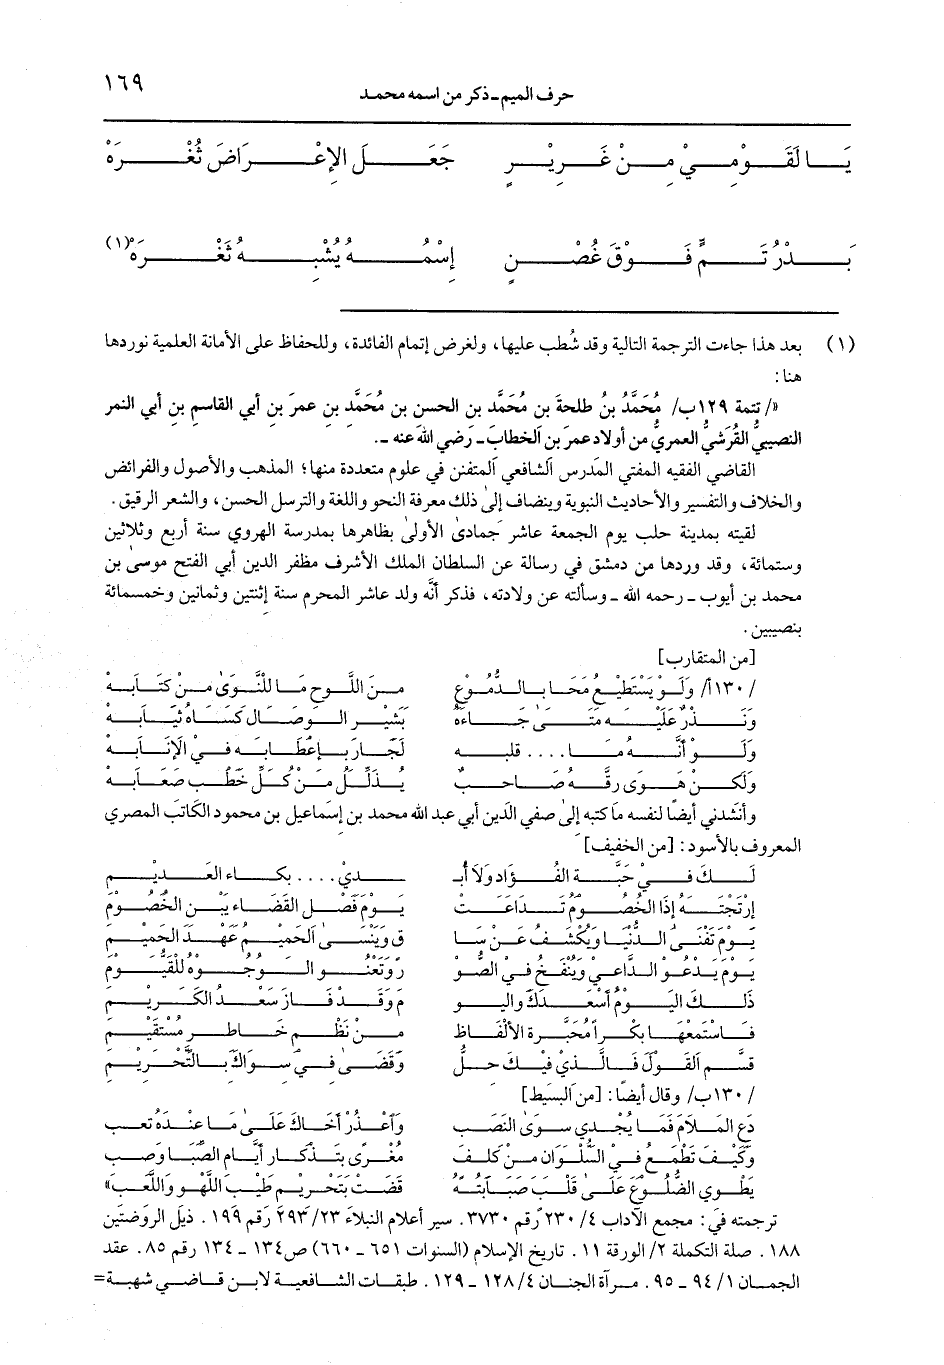 حرف الميم ـ ذكر من اسمه محمد ١٦٩
يَا لَقَوْمِيْ مِنْ غَرِيْرٍ جَعَلَ الإِعْرَاضَ ثُغْرَهْ
بَدْرُ تَمٍّ فَوْقَ غُصْنٍ إسْمُهُ يُشْبِهُ ثَغْرَهْ(١)
(١) بعد هذا جاءت الترجمة التالية وقد شُطب عليها، ولغرض إتمام الفائدة، وللحفاظ على الأمانة العلمية نوردها
هنا:
«/ تتمة ١٢٩ ب/ مُحَمَّدُ بنُ طلحةَ بن مُحَمَّدِ بن الحسن بن مُحَمَّدِ بن عمرَ بن أبي القاسمِ بن أبي النمر
النصيبيُّ القُرَشيُّ العمريُّ من أولاد عمرَ بن الخطاب ـ رضي الله عنه ـ.
القاضي الفقيه المفتي المدرس الشافعي المتفنن في علوم متعددة منها؛ المذهب والأصول والفرائض
والخلاف والتفسير والأحاديث النبوية وينضاف إلى ذلك معرفة النحو واللغة والترسل الحسن، والشعر الرقيق.
لقيته بمدينة حلب يوم الجمعة عاشر جمادىٰ الأولىٰ بظاهرها بمدرسة الهروي سنة أربع وثلاثين
وستمائة، وقد وردها من دمشق في رسالة عن السلطان الملك الأشرف مظفر الدين أبي الفتح موسىٰ بن
محمد بن أيوب ـ رحمه الله ـ وسألته عن ولادته، فذكر أنَّه ولد عاشر المحرم سنة إثنتين وثمانين وخمسمائة
بنصيبين.
[من المتقارب]
/١٣٠أ/ وَلَوْ يَسْتَطِيْعُ مَحَا بِالدُّمُوْعِ مِنَ اللَّوحِ مَا لِلنَّوَىٰ مِنْ كِتَابَهْ
وَنَذْرٌ عَلَيْهِ مَتَىٰ جَاءَهُ بَشْيْرُ الوِصَالِ كَسَاهُ ثِيَابَهْ
وَلَوْ أنَّهُ مَا .... قلبه لَجَارَ بِإعْطَابِهِ فِيْ الإِنَابَهْ
وَلكِنْ هَوَى رِقَّهُ صَاحِبٌ يُذَلِّلُ مِنْ كُلِّ خَطْبٍ صِعَابَهْ
وأنشدني أيضًا لنفسه ما كتبه إلى صفي الدين أبي عبد الله محمد بن إسماعيل بن محمود الكاتب المصري
المعروف بالأسود: [من الخفيف]
لَكَ فِيْ حَبَّةِ الفُؤَادِ وَلَا أُبـ ـدِيْ .... بِكَاءِ العَدِيْمِ
إرْتَجَتْهُ إذَا الخُصُوْمُ تَدَاعَتْ يَوْمَ فَصْلِ القَضَاءِ بَيْنَ الخُصُوْمِ
يَوْمَ تَفْنَىٰ الدُّنْيَا وَيُكْشَفُ عَنْ سَا قٍ وَيَنْسَىٰ الحَمِيْمُ عَهْدَ الحَمِيْمِ
يَوْمَ يَدْعُو الدَّاعِيْ وَيُنْفَخُ فِيْ الصُّوْ رِ وَتَعْنُو الوُجُوْهُ لِلْقَيُّوْمِ
ذَلِكَ اليَوْمُ أَسْعَدَكَ واليَو مَ وَقَدْ فَازَ سَعْدُ الكَرِيْمِ
فَاسْتَمِعْهَا بِكْراً مُحَبَّرَةَ الأَلْفَاظِ مِنْ نَظْمِ خَاطِرٍ مُسْتَقِيْمِ
قَسَّمَ القَوْلَ فَالَّذِيْ فِيْكَ حِلٌّ وَقَضَىٰ فِيْ سِوَاكَ بِالتَّحْرِيْمِ
/١٣٠ب/ وقال أيضًا: [من البسيط]
دَعِ المَلَامَ فَمَا يُجْدِي سِوَى النَّصَبِ وَاعْذُرْ أَخَاكَ عَلَىٰ مَا عِنْدَهُ تعب
وَكَيْفَ تَطْمَعُ فِيْ السُّلْوَانِ مِنْ كَلِفٍ مُغْرًى بِتَذْكَارِ أَيَّامِ الصِّبَا وَصِبِ
يَطْوِي الضُّلُوْعَ عَلَىٰ قَلْبٍ صَبَابَتُهُ قَضَتْ بِتَحْرِيْمِ طِيْبِ اللَّهْوِ وَاللَّعِبِ»
ترجمته في: مجمع الآداب ٤/ ٢٣٠ رقم ٣٧٣٠. سير أعلام النبلاء ٢٣/ ٢٩٣ رقم ١٩٩. ذيل الروضتين
١٨٨. صلة التكملة ٢/ الورقة ١١. تاريخ الإسلام (السنوات ٦٥١ ـ ٦٦٠) ص١٣٤ ـ ١٣٤ رقم ٨٥. عقد
الجمان ١/ ٩٤ ـ ٩٥. مرآة الجنان ٤/ ١٢٨ ـ ١٢٩. طبقات الشافعية لابن قاضي شهبة=